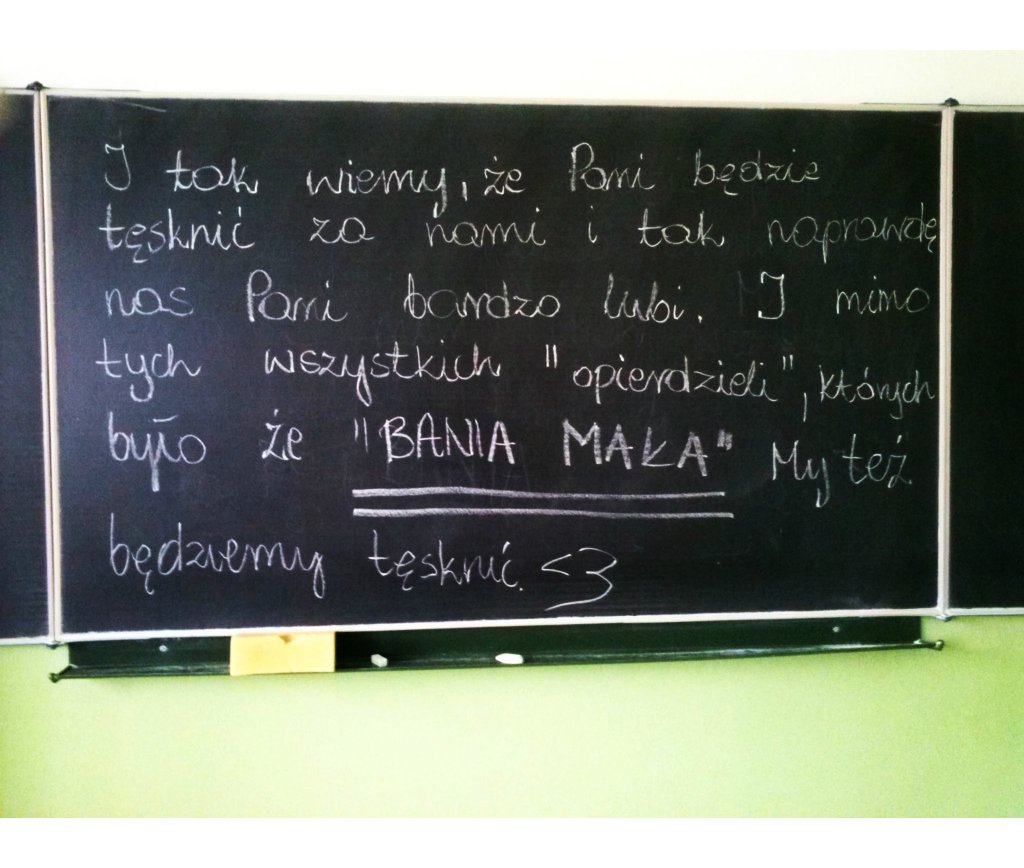 I tak wiemy, że Pani będzie
tęsknić za nami i tak naprawdę
nas Pani bardzo lubi. I mimo
tych wszystkich "opierdzieli", których
było że "BANIA MAŁA" My też
będziemy tęsknić. <3